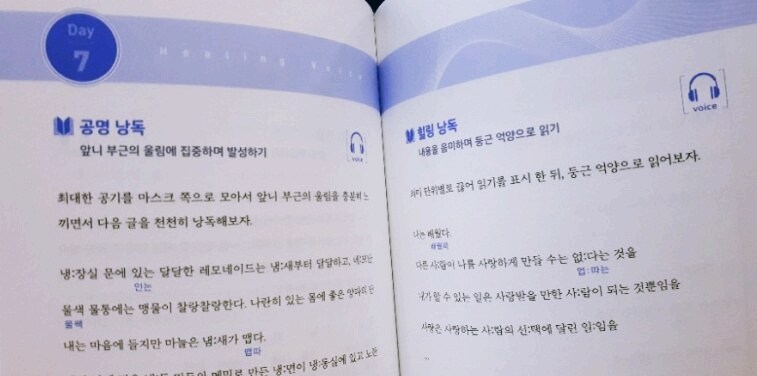 Day
7
Healing Voice
공명 낭독
앞니 부근의 울림에 집중하며 발성하기
최대한 공기를 마스크 쪽으로 모아서 앞니 부근의 울림을 충분히 느
끼면서 다음 글을 천천히 낭독해보자.
냉:장실 문에 있는 달달한 레모네이드는 냄:새부터 달달하고,
인는
물색 물통에는 맹물이 찰랑찰랑한다. 나란히 있는 몸에 좋은
물쌕
내는 마음에 들지만 마늘은 냄:새가 맵다.
맵따
만든 냉:면이 냉:동실에 있고 노란
힐링 낭독
내용을 음미하며 둥근 억양으로 읽기
voice
의미 단위별로 끊어 읽기를 표시 한 뒤, 둥근 억양으로 읽어보자.
나는 배웠다.
다른 사:람이 나를 사랑하게 만들 수는 없:다는 것을
업:따는
내가 할 수 있는 일은 사랑받을 만한 사:람이 되는 것뿐임을
사랑은 사랑하는 사:람의 선:택에 달린 일:임을